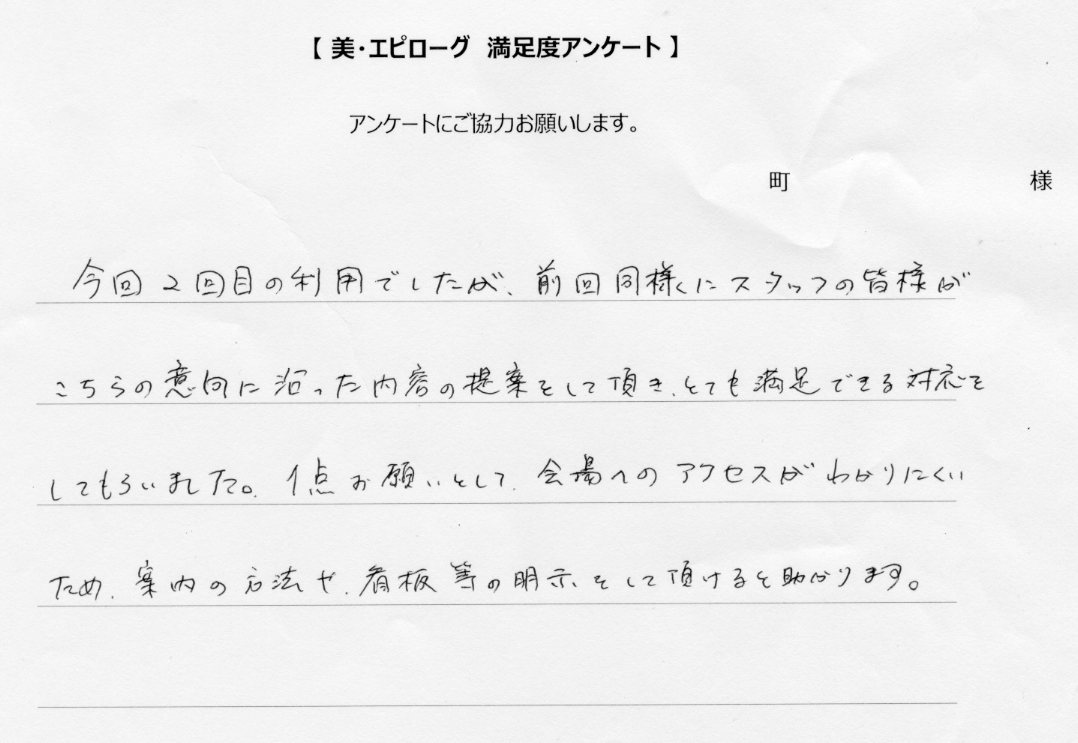 【 美・エピローグ 満足度アンケート 】
アンケートにご協力お願いします。
町 様
今回2回目の利用でしたが、前回同様にスタッフの皆様が
こちらの意向に沿った内容の提案をして頂き、とても満足できる対応を
してもらいました。1点お願いとして、会場へのアクセスがわかりにくい
ため、案内の方法や、看板等の明示をして頂けると助かります。